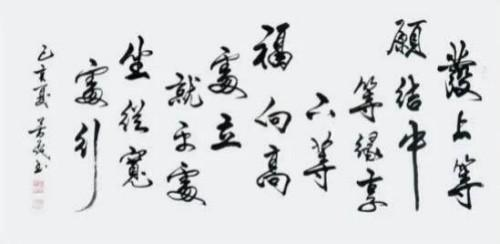 發上等
願結中
等緣享
下等
福向高
處立
就平處
坐從寬
處行
己亥夏 書